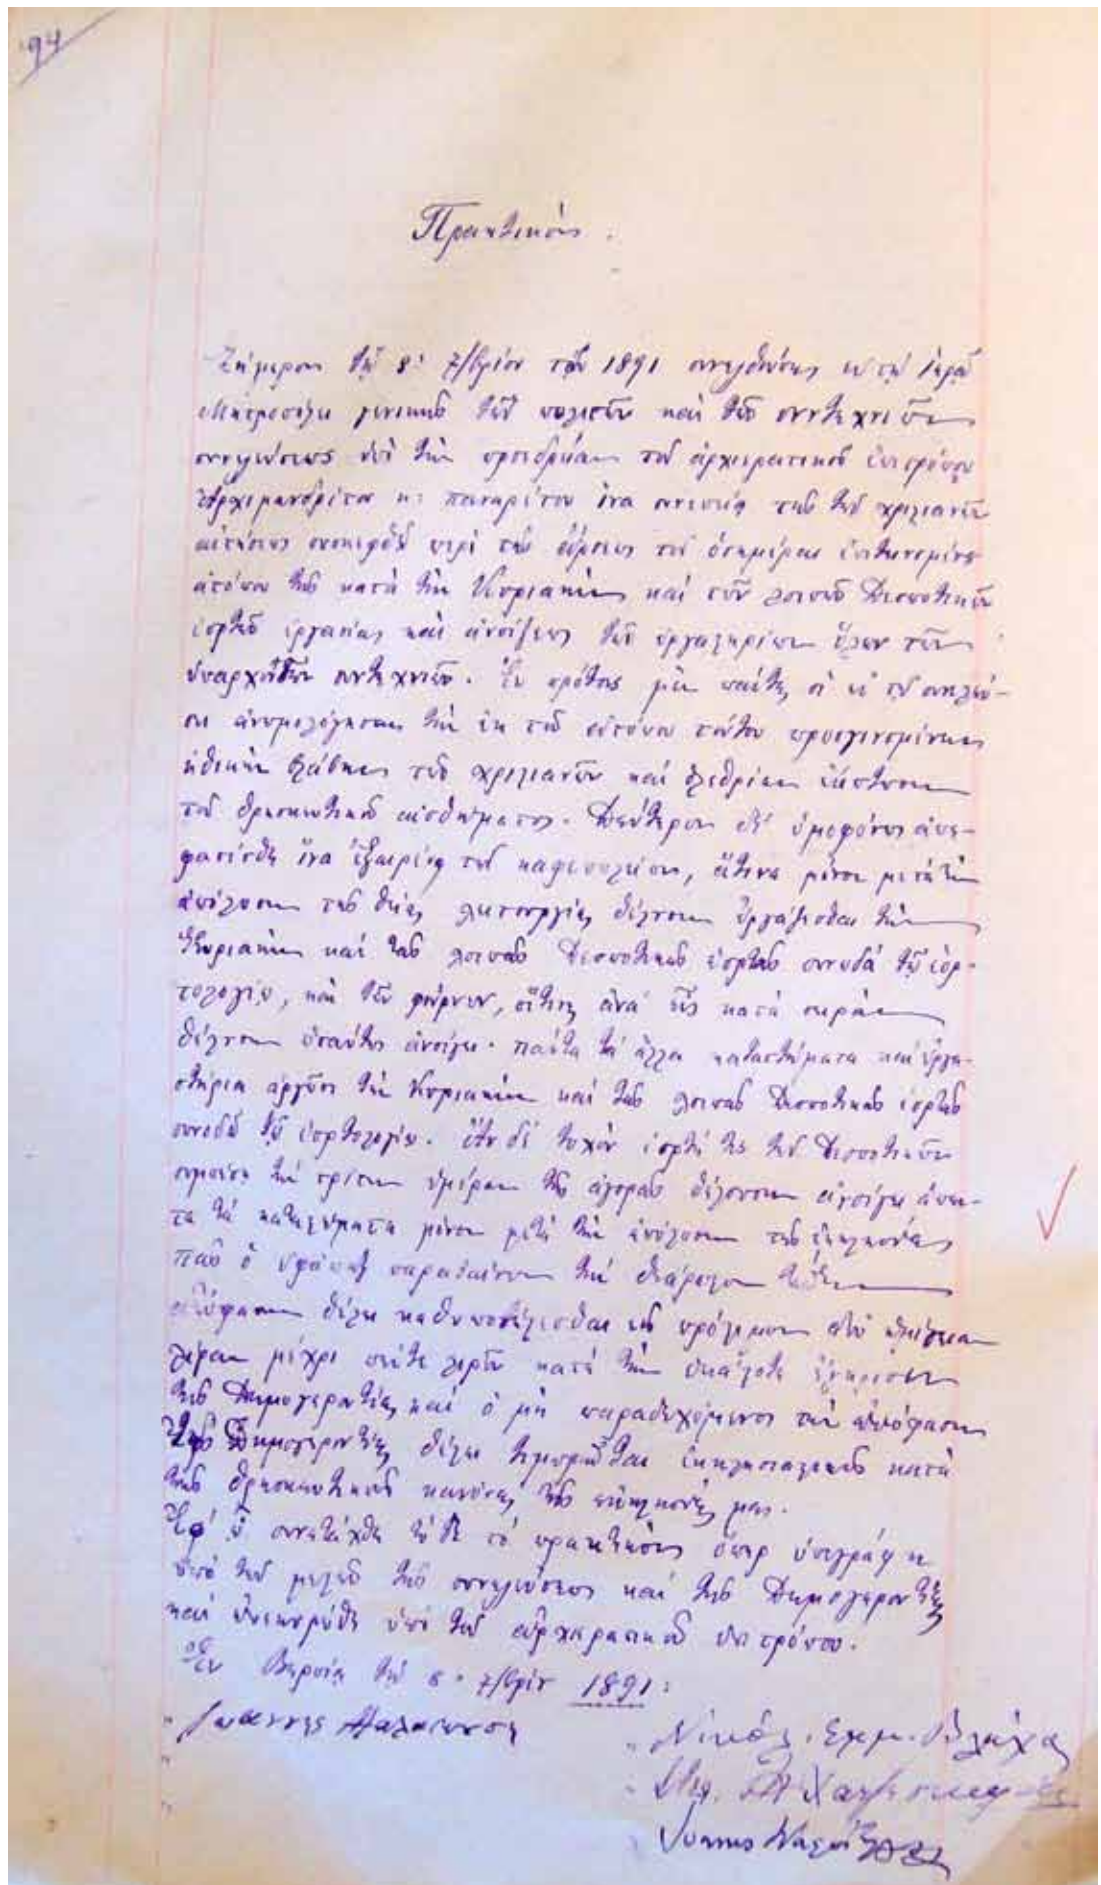 94
Πρακτικόν.
Σήμερον τῇ 8: 7/βρίου τοῦ 1891 συνελθούσης ἐν τῇ Ἱερᾷ
Μητροπόλει γενικῆς τῶν πολιτῶν καὶ τῶν συντεχνιῶν
συνελεύσεως ὑπὸ τὴν προεδρείαν τοῦ ἀρχιερατικοῦ ἐπιτρόπου
Ἀρχιμανδρίτου κ: Παναρέτου ἵνα συνεπείᾳ τῆς τῶν χριστιανῶν
αἰτήσεως συσκεφθῇ περὶ τῆς ἄρσεως τοῦ ὁσημέραι
ἀτόπου τῆς κατὰ τὴν Κυριακὴν καὶ τῶν λοιπῶν Δεσποτικῶν
ἑορτῶν ἐργασίας καὶ ἀνοίξεως τῶν ἐργαστηρίων ὅλων τῶν
ὑπαρχουσῶν συντεχνιῶν. Ἐν πρώτοις μὲν πάντες οἱ ἐν τῇ συνελεύ-
σει ἀνωμολόγησαν τὴν ἐκ τοῦ ἀτόπου τούτου προσγινομένην
ἠθικὴν βλάβην τῶν χριστιανῶν καὶ ὀλεθρίαν ἔκπτωσιν
τοῦ θρησκευτικοῦ αἰσθήματος. Δεύτερον δὲ ὁμοφώνως ἀπε-
φασίσθη ἵνα ἐξαιρέσει τῶν καφεπωλείων, ἅτινα μόνον μετὰ τὴν
ἀπόλυσιν τῆς θείας λειτουργίας θέλουσιν ἐργάζεσθαι τὴν
Κυριακὴν καὶ τὰς λοιπὰς Δεσποτικὰς ἑορτὰς συνῳδὰ τῷ ἑορ-
τολογίῳ, καὶ τῶν φούρνων, οἵτινες ἀνὰ εἷς κατὰ σειρὰν
θέλουσιν ὡσαύτως ἀνοίγει. πάντα τὰ ἄλλα καταστήματα καὶ ἐργα-
στήρια ἀργῶσι τὴν Κυριακὴν καὶ τὰς λοιπὰς Δεσποτικὰς ἑορτὰς
συνῳδὰ τῷ ἑορτολογίῳ. Ἐὰν δὲ τυχὸν ἑορτή τις τῶν Δεσποτικῶν
συμπέσῃ τὴν τρίτην ἡμέραν τῆς ἀγορᾶς θέλουσιν ἀνοίγει ἅπαν-
τα τὰ καταστήματα μόνον μετὰ τὴν ἀπόλυσιν τῆς ἐκκλησίας
πᾶς ὁ παραβαίνων τὴν
ἀπόφασιν θέλει καθυποβάλλεσθαι εἰς πρόστιμον ἀπὸ
λίραν μέχρι πέντε λιρῶν κατὰ τὴν ἑκάστοτε ἔγκρισιν
τῆς Δημογεροντίας καὶ ὁ μὴ παραδεχόμενος τὴν ἀπόφασιν
τῆς Δημογεροντίας θέλει τιμωρεῖται ἐκκλησιαστικῶς κατὰ
τοὺς θρησκευτικοὺς κανόνας τῆς ἐκκλησίας μας.
Ἐφ' ᾧ συνετάχθη τόδε τὸ πρακτικὸν ὅπερ ὑπεγράφη
ὑπὸ τῶν μελῶν τῆς συνελεύσεως καὶ τῆς Δημογεροντίας
καὶ ἐπεκυρώθη ὑπὸ τοῦ ἀρχιερατικοῦ ἐπιτρόπου.
Ἐν Βερροίᾳ τῇ 8. 7/βρίου 1891:
Ἰωάννης
Νικόλ. Εμμ. Βλάχος